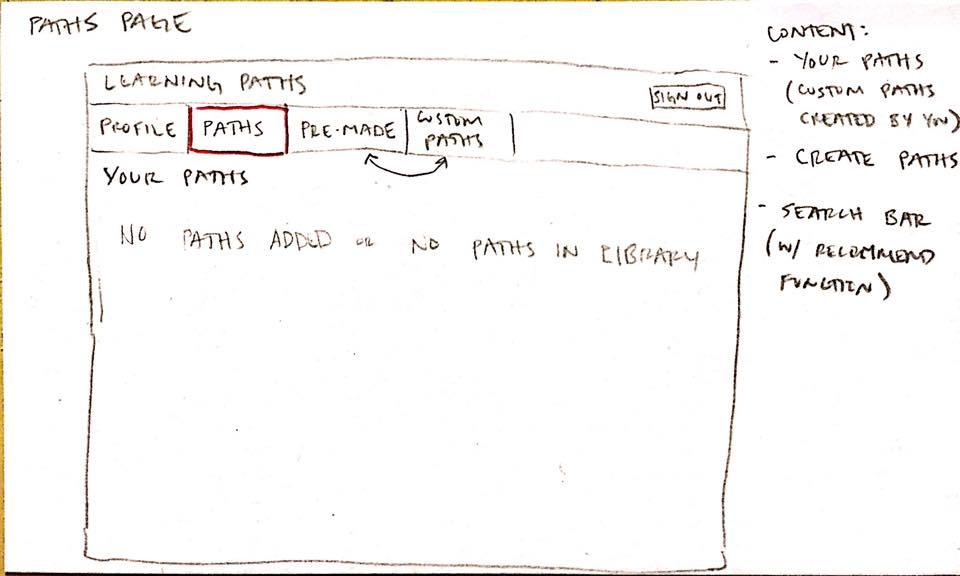 PATHS PAGE
LEARNING PATHS
SIGN OUT
PROFILE
PATHS
PRE-MADE
CUSTOM
PATHS
YOUR PATHS
NO PATHS ADDED OR NO PATHS IN LIBRARY
CONTENT:
- YOUR PATHS
(CUSTOM PATHS
CREATED BY YOU)
- CREATE PATHS
- SEARCH BAR
(W/ RECOMMEND
FUNCTION)